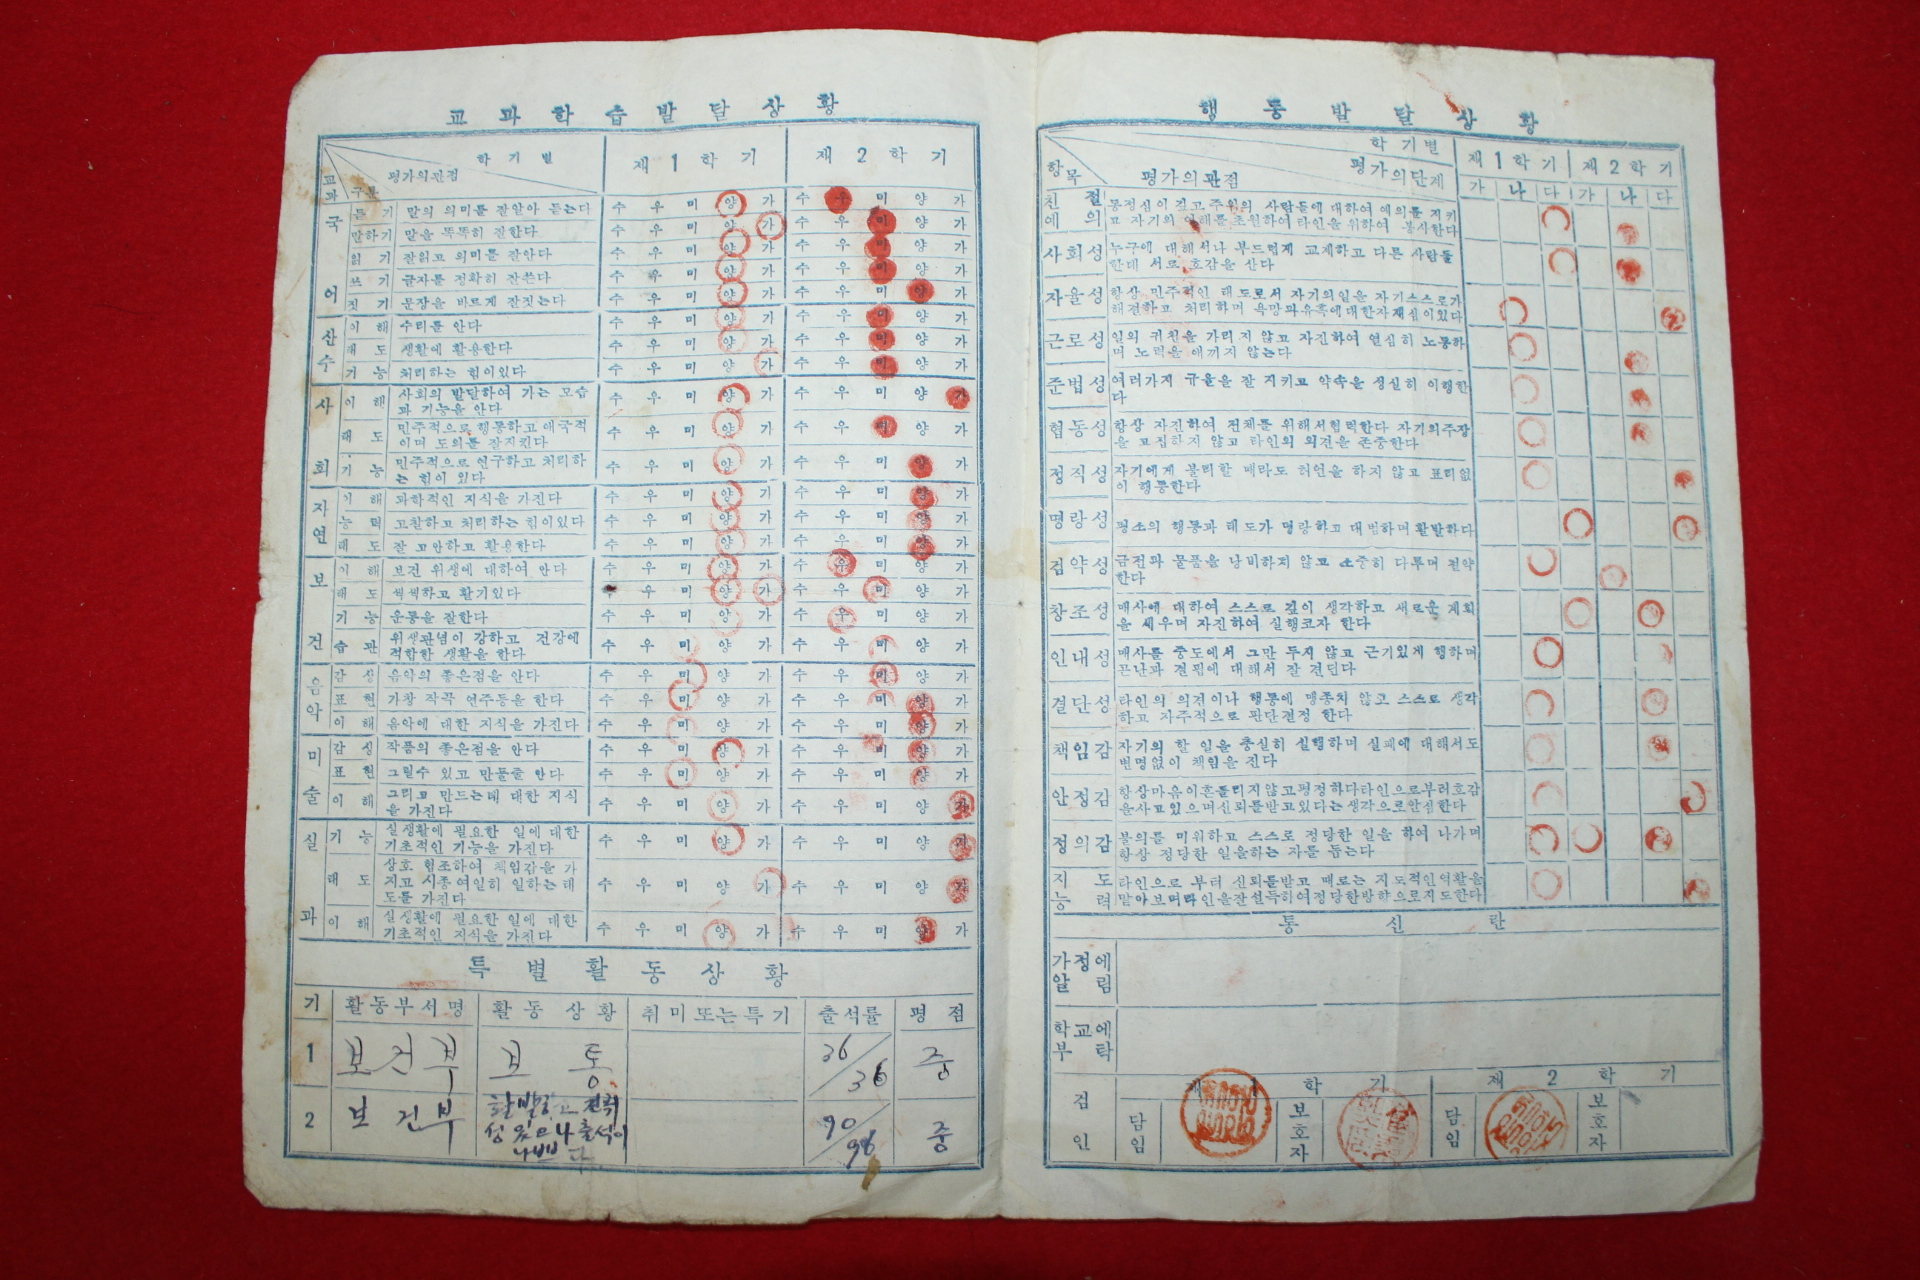 교과학습발달상황
학기별
평가의관점
교과 구분
제1학기 제2학기
국어
듣기 말의 의미를 잘알아 듣는다 수 우 미 양 가 수 우 미 양 가
말하기 말을 똑똑히 잘한다 수 우 미 양 가 수 우 미 양 가
읽기 잘읽고 의미를 잘안다 수 우 미 양 가 수 우 미 양 가
쓰기 글자를 정확히 잘쓴다 수 우 미 양 가 수 우 미 양 가
짓기 문장을 바르게 잘짓는다 수 우 미 양 가 수 우 미 양 가
산수
이해 수리를 안다 수 우 미 양 가 수 우 미 양 가
태도 생활에 활용한다 수 우 미 양 가 수 우 미 양 가
기능 처리하는 힘이있다 수 우 미 양 가 수 우 미 양 가
사회
이해 사회의 발달하여 가는 모습
과 기능을 안다 수 우 미 양 가 수 우 미 양 가
태도 민주적으로 행동하고 애국적
이며 도의를 잘지킨다 수 우 미 양 가 수 우 미 양 가
기능 민주적으로 연구하고 처리하
는 힘이 있다 수 우 미 양 가 수 우 미 양 가
자연
이해 과학적인 지식을 가진다 수 우 미 양 가 수 우 미 양 가
능력 고찰하고 처리하는 힘이있다 수 우 미 양 가 수 우 미 양 가
태도 잘 고안하고 활용한다 수 우 미 양 가 수 우 미 양 가
보건
이해 보건 위생에 대하여 안다 수 우 미 양 가 수 우 미 양 가
태도 씩씩하고 활기있다 수 우 미 양 가 수 우 미 양 가
기능 운동을 잘한다 수 우 미 양 가 수 우 미 양 가
습관 위생관념이 강하고 건강에
적합한 생활을 한다 수 우 미 양 가 수 우 미 양 가
음악
감상 음악의 좋은점을 안다 수 우 미 양 가 수 우 미 양 가
표현 가창 작곡 연주등을 한다 수 우 미 양 가 수 우 미 양 가
이해 음악에 대한 지식을 가진다 수 우 미 양 가 수 우 미 양 가
미술
감상 작품의 좋은점을 안다 수 우 미 양 가 수 우 미 양 가
표현 그릴수 있고 만들줄 안다 수 우 미 양 가 수 우 미 양 가
이해 그리고 만드는데 대한 지식
을 가진다 수 우 미 양 가 수 우 미 양 가
실과
기능 실생활에 필요한 일에 대한
기초적인 기능을 가진다 수 우 미 양 가 수 우 미 양 가
태도 상호 협조하여 책임감을 가
지고 시종여일히 일하는 태
도를 가진다 수 우 미 양 가 수 우 미 양 가
이해 실생활에 필요한 일에 대한
기초적인 지식을 가진다 수 우 미 양 가 수 우 미 양 가
특별활동상황
기 활동부서명 활동상황 취미또는특기 출석률 평점
1 보건부 보통 36/36 중
2 보건부 활발하고 진취
성 있으나 출석이
나쁘다 90/96 중
행동발달상황
학기별
평가의단계
항목 평가의관점
제1학기 제2학기
가 나 다 가 나 다
친절 동정심이 깊고 주위의 사람들에 대하여 예의를 지키
예의 고 자기의 이해를 초월하여 타인을 위하여 봉사한다
사회성 누구에 대해서나 부드럽게 교제하고 다른 사람들
한테 서로 호감을 산다
자율성 항상 민주적인 태도로서 자기의일을 자기스스로가
해결하고 처리하며 욕망과유혹에대한자제심이있다
근로성 일의 귀천을 가리지 않고 자진하여 열심히 노동하
며 노력을 애끼지 않는다
준법성 여러가지 규율을 잘 지키고 약속을 성실히 이행한
다
협동성 항상 자진하여 전체를 위해서협력한다 자기의주장
을 고집하지 않고 타인의 의견을 존중한다
정직성 자기에게 불리할 때라도 허언을 하지 않고 표리없
이 행동한다
명랑성 평소의 행동과 태도가 명랑하고 대범하며 활발하다
검약성 금전과 물품을 낭비하지 않고 소중히 다루며 절약
한다
창조성 매사에 대하여 스스로 깊이 생각하고 새로운 계획
을 세우며 자진하여 실행코자 한다
인내성 매사를 중도에서 그만 두지 않고 근기있게 행하며
곤난과 결핍에 대해서 잘 견딘다
결단성 타인의 의견이나 행동에 맹종치 않고 스스로 생각
하고 자주적으로 판단결정 한다
책임감 자기의 할 일을 충실히 실행하며 실패에 대해서도
변명없이 책임을 진다
안정감 항상마음이흔들리지않고평정하다타인으로부터호감
을사고있으며신뢰를받고있다는생각으로안심한다
정의감 불의를 미워하고 스스로 정당한 일을 하여 나가며
항상 정당한 일을하는 자를 돕는다
지도 타인으로 부터 신뢰를받고 때로는 지도적인역활을
능력 맡아보며타인을잘설득하여정당한방향으로지도한다
통신란
가정에
알림
학교에
부탁
검인
제1학기 제2학기
담임 보호자 담임 보호자